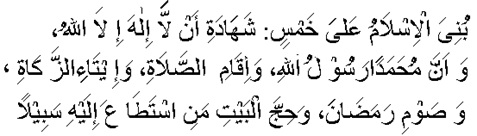 بُنِىَ الْاِسْلَامُ عَلىَ خَمْسٍ: شَهَادَةِ اَنْ لَّا اِلٰهَ اِ لَا اللهُ،
وَ اَنَّ مُحَمَدًارَسُوْ لُ اللهِ، وَاِقَامِ الصَّلَاةِ، وَاِ يْتَاءِالزَّ كَاةِ ،
وَ صَوْمِ رَمَضَانَ، وَحِجِّ الْبَيْتِ مَنِ اسْتَطَا عَ اِلَيْهِ سَبِيْلًا